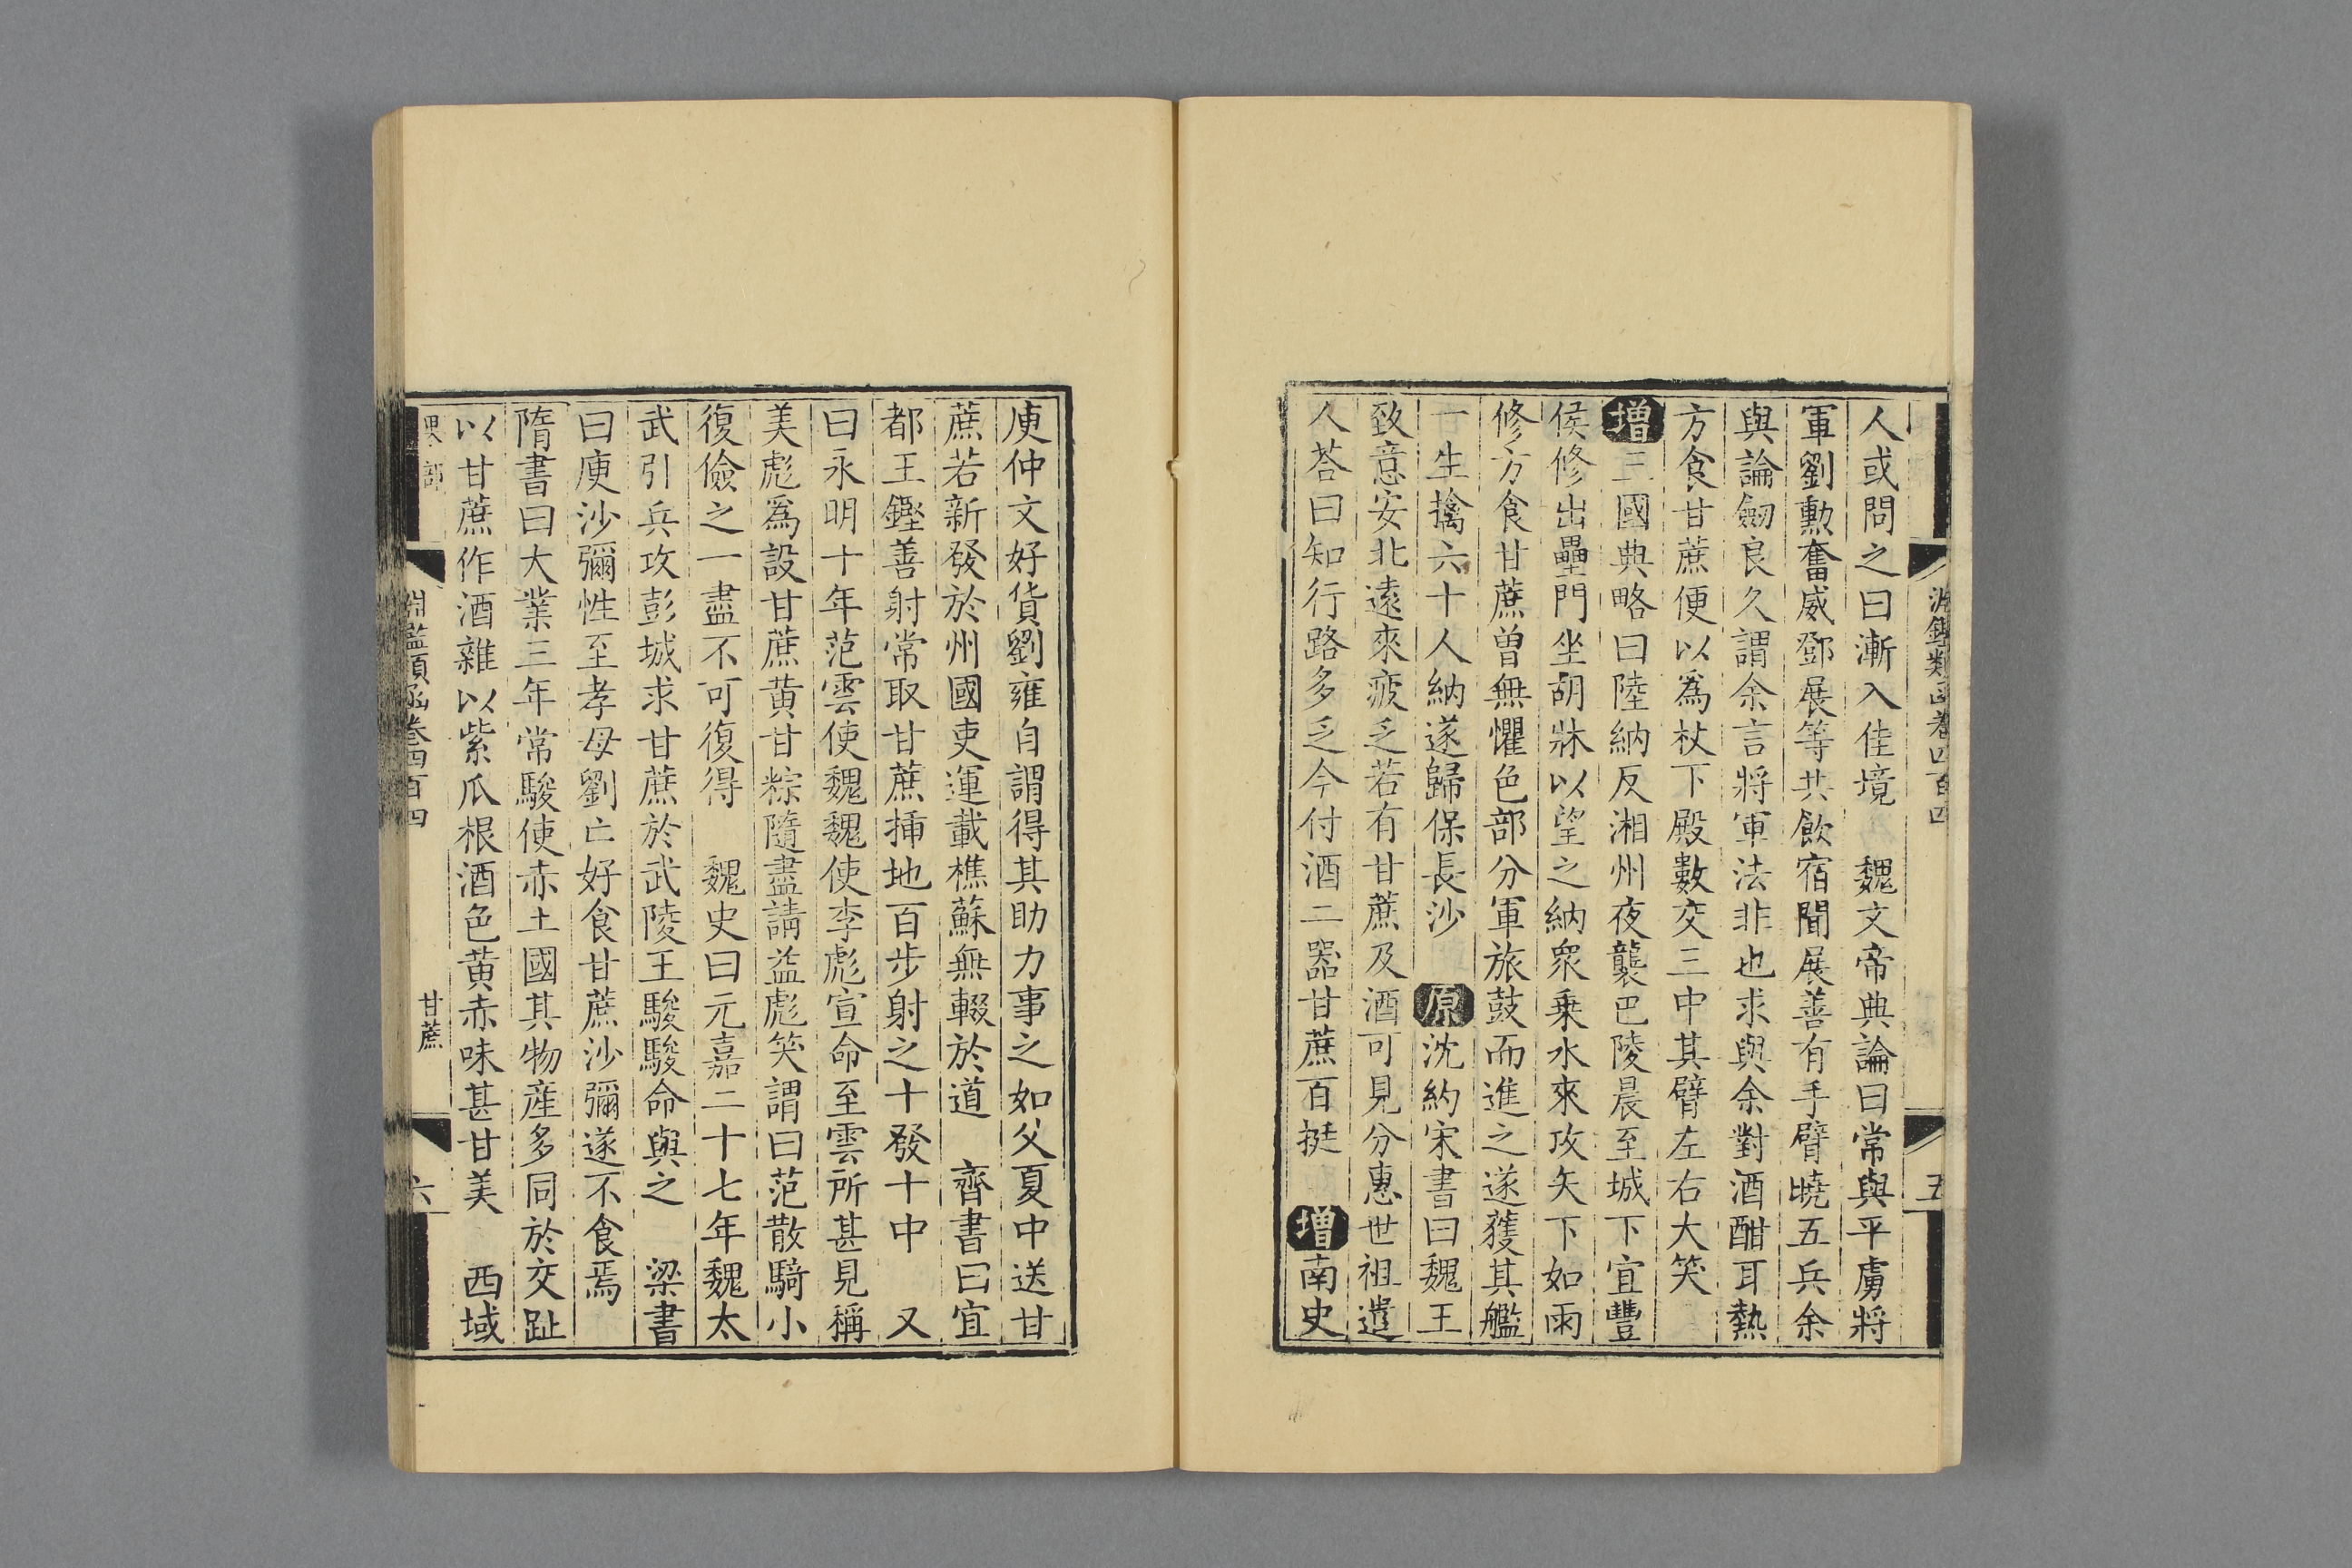 淵鑑類函卷四百四
五
人或問之曰漸入佳境 魏文帝典論曰常與平虜將
軍劉勳奮威鄧展等共飲宿聞展善有手臂曉五兵余
與論劒良久謂余言將軍法非也求與余對酒酣耳熱
方食甘蔗便以爲杖下殿數交三中其臂左右大笑
增三國典略曰陸納反湘州夜襲巴陵晨至城下宜豐
侯修出壘門坐胡牀以望之納衆乗水來攻矢下如雨
修方食甘蔗曽無懼色部分軍旅鼓而進之遂獲其艦
一生擒六十人納遂歸保長沙 原沈約宋書曰魏王
致意安北遠來疲乏若有甘蔗及酒可見分惠世祖遣
人荅曰知行路多乏今付酒二器甘蔗百挺 增南史
庾仲文好貨劉雍自謂得其助力事之如父夏中送甘
蔗若新發於州國吏運載樵蘇無輟於道 齊書曰宜
都王鏗善射常取甘蔗揷地百步射之十發十中 又
曰永明十年范雲使魏魏使李彪宣命至雲所甚見稱
美彪爲設甘蔗黄甘粽隨盡請益彪笑謂曰范散騎小
復儉之一盡不可復得 魏史曰元嘉二十七年魏太
武引兵攻彭城求甘蔗於武陵王駿駿命與之 梁書
曰庾沙彌性至孝母劉亡好食甘蔗沙彌遂不食焉
隋書曰大業三年常駿使赤土國其物産多同於交趾
以甘蔗作酒雜以紫瓜根酒色黄赤味甚甘美 西域
果部
淵鑑類函卷四百四
甘蔗
六